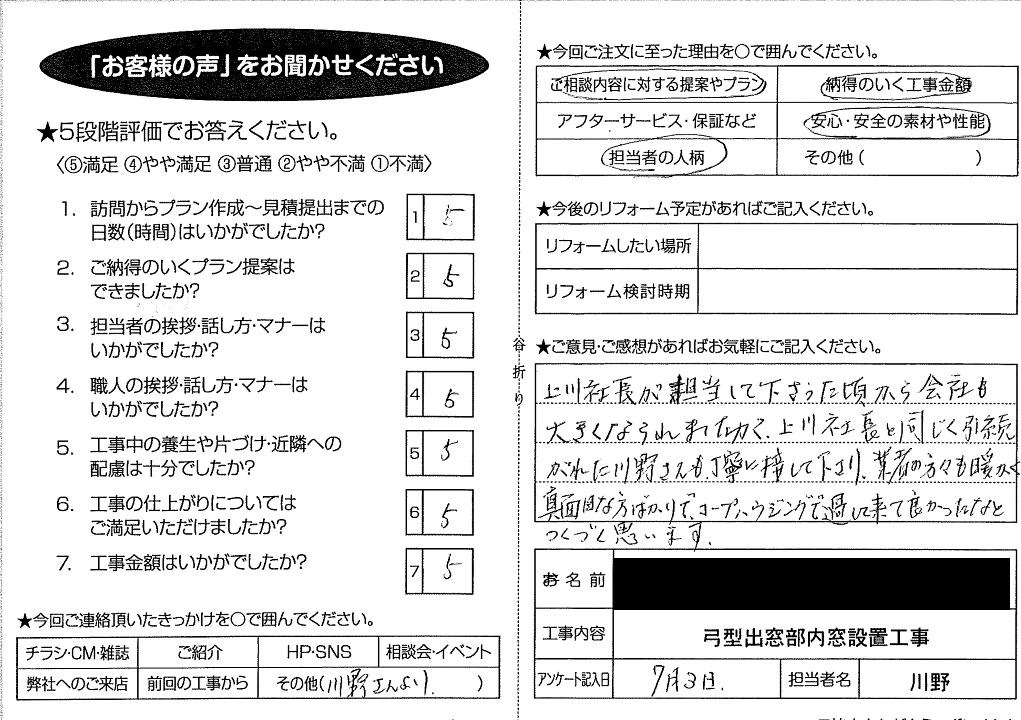 「お客様の声」をお聞かせください
★5段階評価でお答えください。
〈⑤満足 ④やや満足 ③普通 ②やや不満 ①不満〉
1. 訪問からプラン作成～見積提出までの
日数(時間)はいかがでしたか?
1 5
2. ご納得のいくプラン提案は
できましたか?
2 5
3. 担当者の挨拶・話し方・マナーは
いかがでしたか?
3 5
4. 職人の挨拶・話し方・マナーは
いかがでしたか?
4 5
5. 工事中の養生や片づけ・近隣への
配慮は十分でしたか?
5 5
6. 工事の仕上がりについては
ご満足いただけましたか?
6 5
7. 工事金額はいかがでしたか?
7 5
★今回ご連絡頂いたきっかけを○で囲んでください。
チラシ・CM・雑誌 ご紹介 HP・SNS 相談会・イベント
弊社へのご来店 前回の工事から その他(川野さんより )
谷折り
★今回ご注文に至った理由を○で囲んでください。
ご相談内容に対する提案やプラン 納得のいく工事金額
アフターサービス・保証など 安心・安全の素材や性能
担当者の人柄 その他( )
★今後のリフォーム予定があればご記入ください。
リフォームしたい場所
リフォーム検討時期
★ご意見・ご感想があればお気軽にご記入ください。
上川社長が担当して下さった頃から会社も
大きくなられましたが、上川社長と同じく引続
がれた川野さんも丁寧に接して下さり、業者の方々も暖かく
真面目な方ばかりで、コープハウジングで過して来て良かったなと
つくづく思います。
お名前
工事内容 弓型出窓部内窓設置工事
アンケート記入日 7月3日. 担当者名 川野